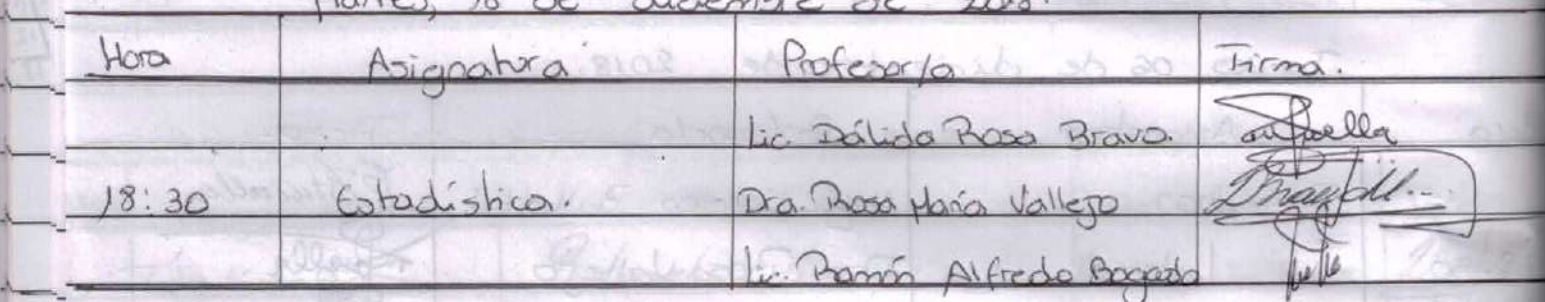 Martes, 18 de diciembre de 2018.
Hora Asignatura Profesor/a Firma.
Lic. Dálida Rosa Bravo.
18:30 Estadística. Dra. Rosa María Vallejo
Lic. Ramón Alfredo Bogado